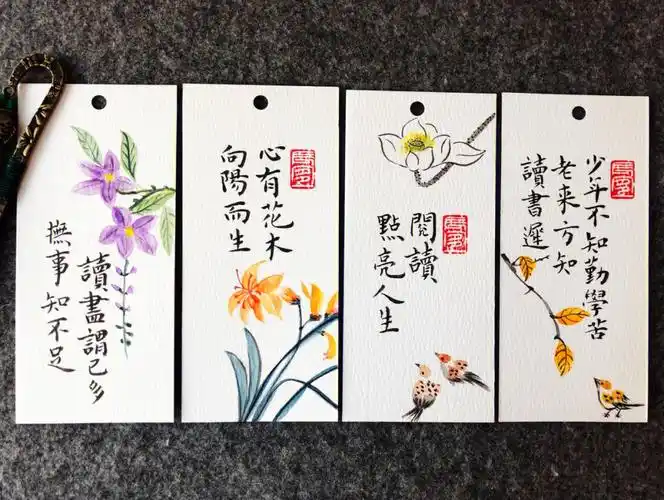 讀盡謂已多
撫事知不足
心有花木
向陽而生
閱讀
點亮人生
少年不知勤學苦
老来方知
讀書遲